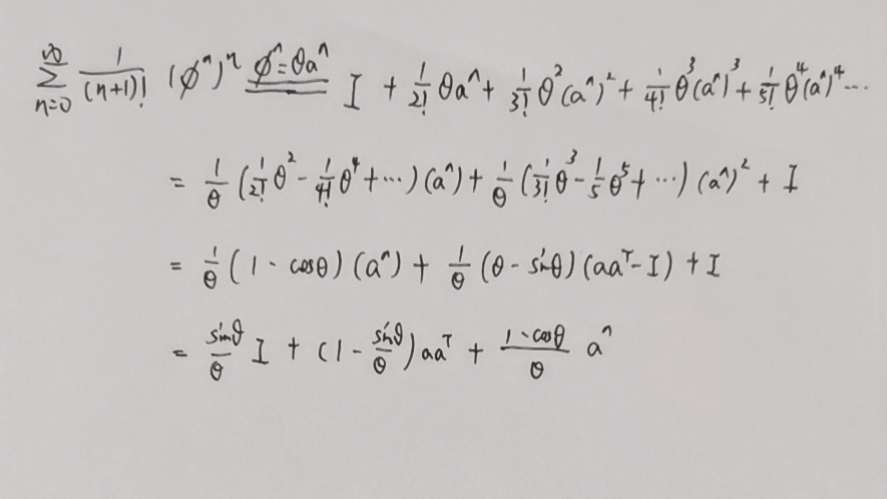 ∑_{n=0}^{∞} 1/(n+1)! (φ^)^n φ^=θa^ I + 1/2! θa^ + 1/3! θ²(a^)² + 1/4! θ³(a^)³ + 1/5! θ⁴(a^)⁴ ...
= 1/θ (1/2! θ² - 1/4! θ⁴ + ...) (a^) + 1/θ (1/3! θ³ - 1/5 θ⁵ + ...) (a^)² + I
= 1/θ (1 - cosθ) (a^) + 1/θ (θ - sinθ) (aaᵀ - I) + I
= sinθ/θ I + (1 - sinθ/θ) aaᵀ + (1 - cosθ)/θ a^